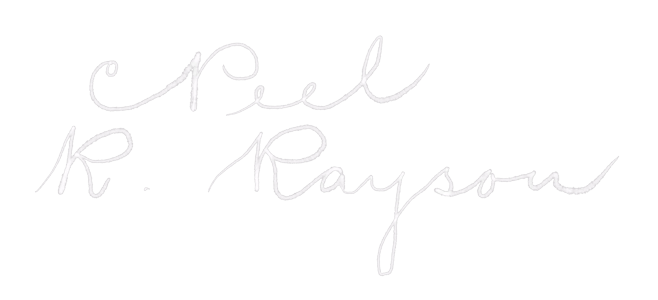 Peel
R. Rayson